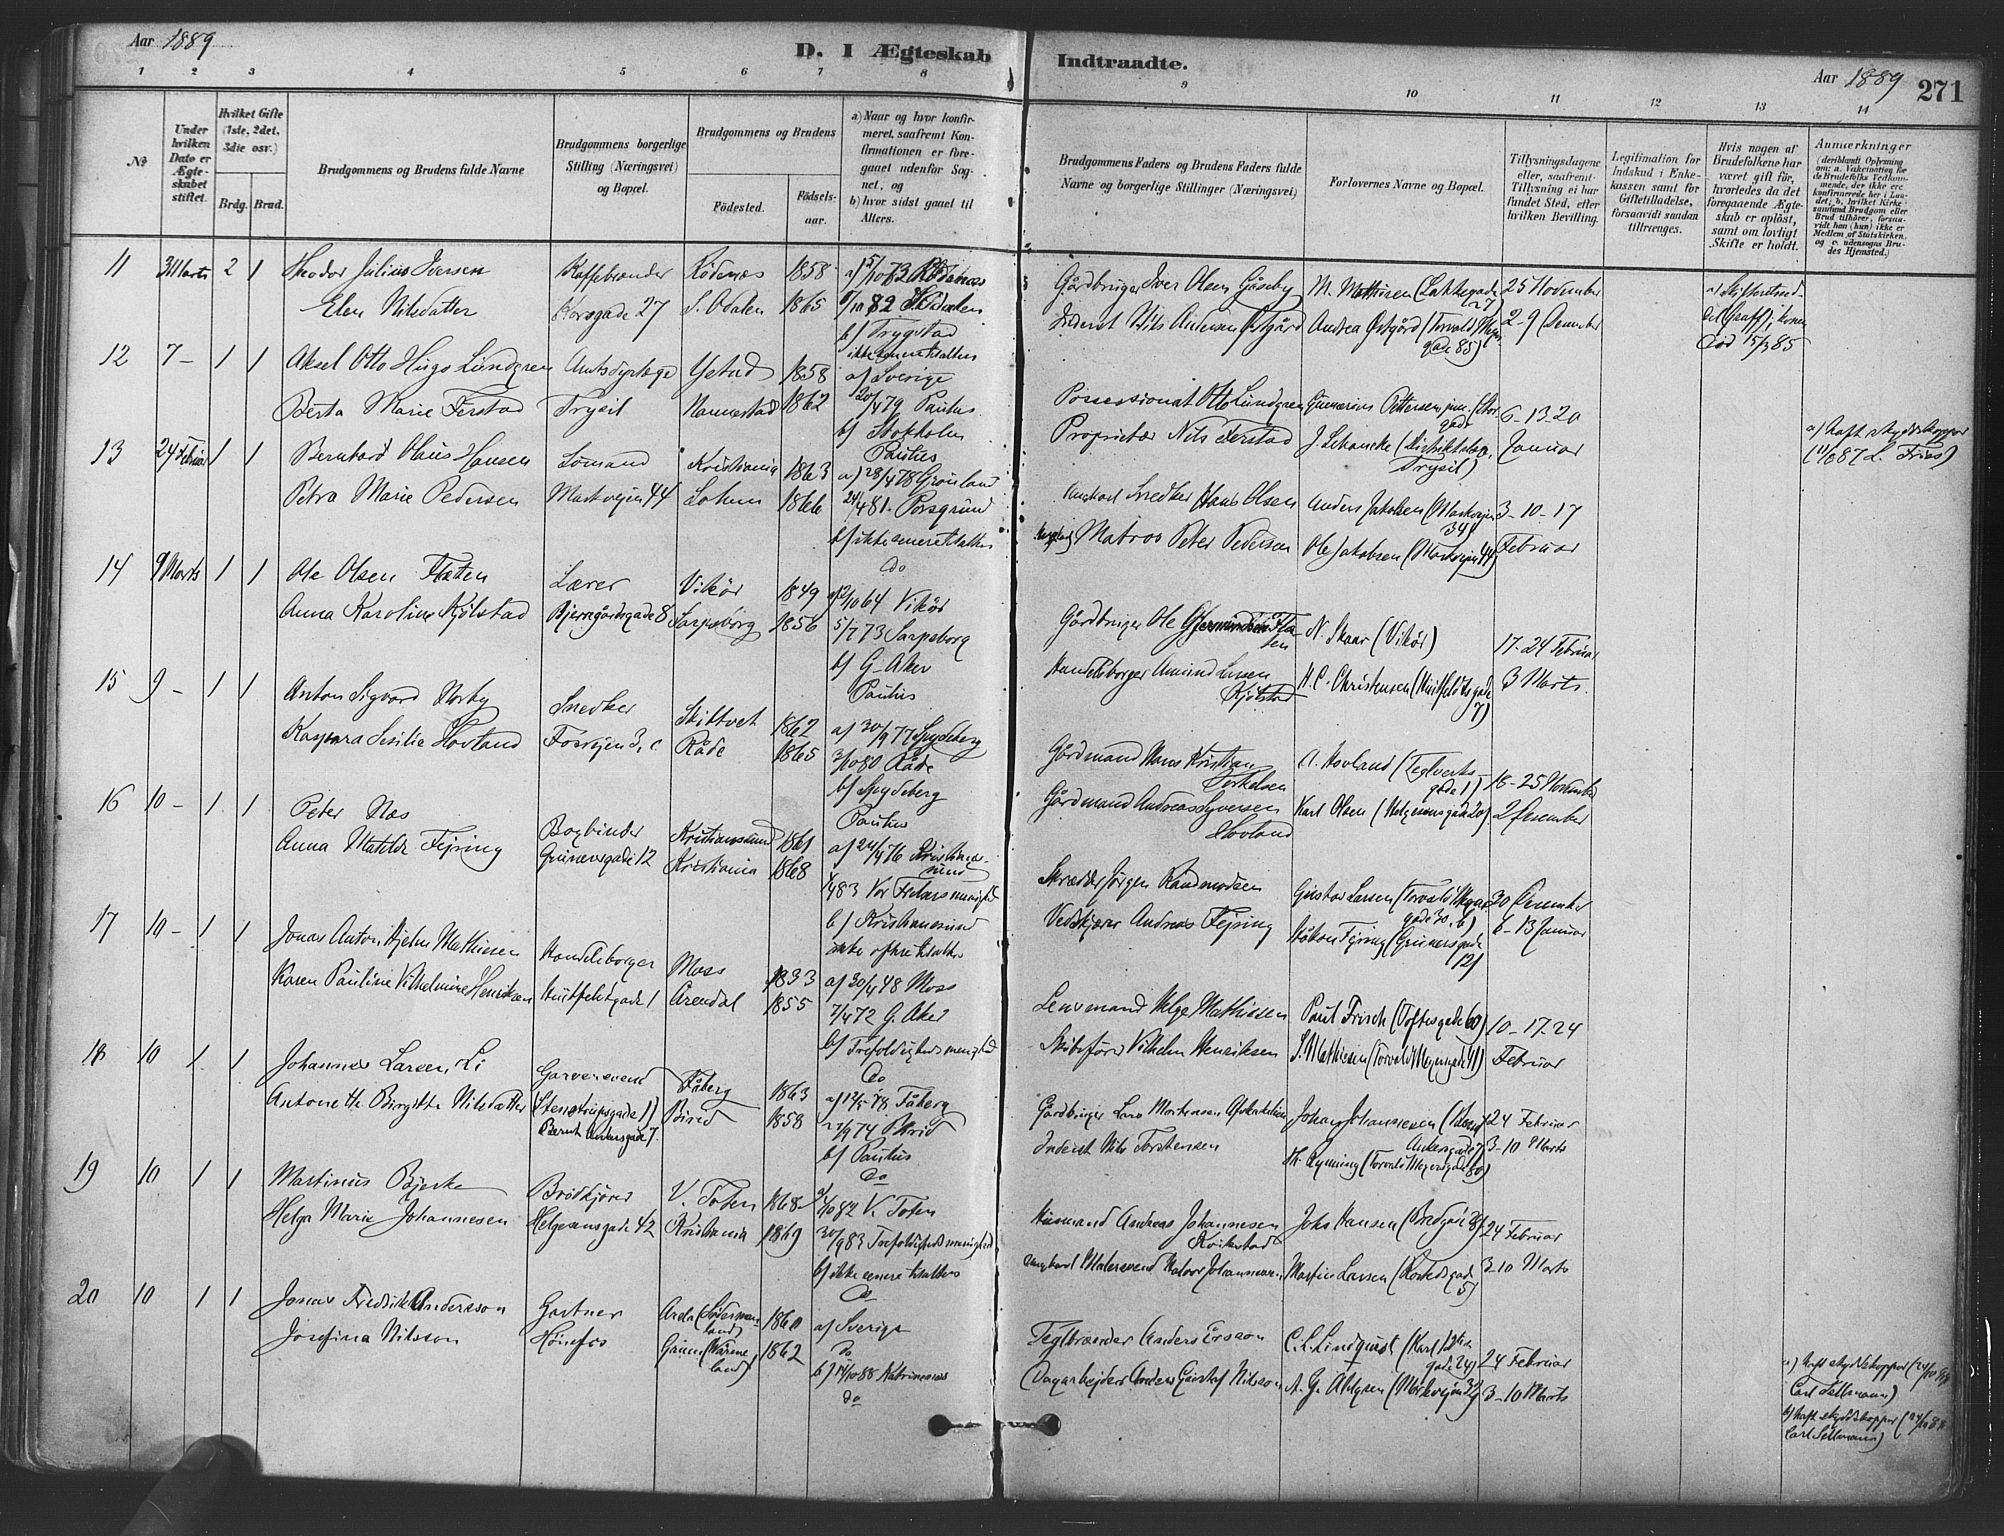 Aar 1889
D. I Ægteskab Indtraadte.
Aar 1889 271
1 2 3 4 5 6 7 8 9 10 11 12 13 14
№
Under hvilken Dato er Ægteskabet stiftet.
Hvilket Gifte (1ste, 2det, 3die osv.)
Brdg. Brud.
Brudgommens og Brudens fulde Navne
Brudgommens borgerlige Stilling (Næringsvei) og Bopæl.
Brudgommens og Brudens
Fødested.
Fødselsaar.
a) Naar og hvor konfirmeret, saafremt Konfirmationen er foregaaet udenfor Sognet, og
b) hvor sidst gaaet til Alters.
Brudgommens Faders og Brudens Faders fulde Navne og borgerlige Stillinger (Næringsvei)
Forlovernes Navne og Bopæl.
Tillysningsdagene eller, saafremt Tillysning ei har fundet Sted, efter hvilken Bevilling.
Legitimation for Indskud i Enkekassen samt for Giftetilladelse, forsaavidt saadan tiltrænges.
Hvis nogen af Brudefolkene har været gift før, hvorledes da det foregaaende Ægteskab er opløst, samt om lovligt Skifte er holdt.
Anmærkninger
(deriblandt Oplysning om: a. Vaccination for de Brudefolks Vedkommende, der ikke ere konfirmerede her i Landet; b, hvilket Kirkesamfund Brudgom eller Brud tilhører, forsaavidt han (hun) ikke er Medlem af Statskirken, og c. udensogns Brudes Hjemsted.)
11 3 Marts 2 1 Theodor Julius Iversen Kaffebrænder Rødenæs 1858 a) 5/10 73 Rødenæs
Elen Nilsdatter Korsgade 27 S. Odalen 1865 8/10 82 S. Odalen
b) Trygstad
Gårdbruger Iver Olsen Gåseby M. Mathisen (Lakkegade 27 25 November
Inderst Nils Andersen Østgård Andrea Østgård (Torvald Meyersgade 85) 2-9 Desember
a) Skifteretsdel (Graff); konen død 15/3 85
12 7 - 1 1 Aksel Otto Hugo Lundgren Amtsdyrlæge Ystad 1858 a) Sverige
Berta Marie Ferstad Trysil Nannestad 1862 20/4 79 Paulus
b) Stokholm
Paulus
Possessionat Otto Lundgren Gunnerius Pettersen jun. (Storgade 6-13-20
Proprietær Nils Ferstad J. Schancke (Distriktslæge, Trysil) Januar
a) haft skyddskoppor (11/6 87 L. Fries)
13 24 Februar 1 1 Bernhard Olaus Hansen Sømand Kristiania 1863 a) 28/4 78 Grønland
Petra Marie Pedersen Markvejen 44 Sotum 1866 24/4 81 Porsgrund
b) ikke senere til alters
do
Snedker Hans Olsen Anders Jakobsen (Markvejen 34) 3-10-17
Matros Peter Pedersen Ole Jakobsen (Markvejen 44) Februar
14 9 Marts 1 1 Ole Olsen Flaten Lærer Vikør 1849 a) 12/10 64 Vikør
Anna Karoline Kjølstad Bjerregårdsgade 8 Sarpsborg 1856 5/7 73 Sarpsborg
b) G. Aker
Paulus
Gårdbruger Ole Gjermundsen Flaten N. Skaar (Vikør) 17-24 Februar
Handelsborger Amund Larsen Kjølstad H. C. Christensen (Huitfeldtsgade 7) 3 Marts
15 9 - 1 1 Anton Sigvard Norby Snedker Skiptvet 1862 a) 30/9 77 Spydeberg
Kaspara Sesilie Hovland Fossvejen 3, c Råde 1865 3/10 80 Råde
b) Spydeberg
Paulus
Gårdmand Hans Kristian Torkelsen A. Hovland (Teglverksgade 1) 18-25 November
Gårdmand Andreas Syversen Hovland Karl Olsen (Helgesensgade 20) 2 Desember
16 10 - 1 1 Peter Næs Bogbinder Kristianssund 1861 a) 24/4 76 Kristianssund
Anna Matilde Fejring Grünersgade 12 Kristiania 1868 1/4 83 Vor Frelsers menighed
b) Kristianssund
ikke oftere til alters
Skrædder Jørgen Randmodsen Gustav Larsen (Torvald Meyersgade 30, b) 30 Desember
Vedskjærer Andreas Fejring Håkon Fejring (Grünersgade 12) 6-13 Januar
17 10 - 1 1 Jonas Anton Hjelm Mathiesen Handelsborger Moss 1833 a) 30/4 48 Moss
Karen Pauline Vilhelmine Henriksen Huitfeldtsgade 1 Arendal 1855 7/4 72 G. Aker
b) Trefoldigheds menighed
do
Lensmand Helge Mathiesen Paul Frisch (Toftesgade 60) 10-17-24
Skibsfører Vilhelm Henriksen S. Mathiesen (Torvald Meyersgade 41) Februar
18 10 1 1 Johannes Larsen Li Garversvend Fåberg 1863 a) 12/5 78 Fåberg
Antonette Birgitte Nilsdatter (Stenstrupsgade 1) Biri 1858 22/9 74 Biri
Bernt Ankersgade 7.
b) Paulus
do
Gårdbruger Lars Mortensen Johan Johannesen (Bernt Ankersgade 7) 24 Februar
Inderst Nils Torstensen H. Rynning (Torvald Meyersgade 80) 3-10 Marts
19 10 1 1 Martinus Bjerke Brødkjører V. Toten 1868 /10 82 V. Toten
Helga Marie Johannesen Helgesensgade 42 Kristiania 1869 30/9 83 Trefoldigheds menighed
b) ikke senere til alters
do
Husmand Andreas Johannesen Kvikstad Johs Hansen (Bredgade 8) 24 Februar
Malersvend Halvor Johannesen Martin Larsen (Rostedsgade 5) 3-10 Marts
20 10 1 1 Jonas Fredrik Andersson Gartner Arda (Södermanland) 1860 a) Sverige
Josefina Nilsson Hønefos Grums (Värmeland) 1862 do
b) 14/10 88 Katrineness
do
Teglbrænder Anders Ersson C. L. Lindquist (Karl 12tes gade 24) 24 Februar
Dagarbejder Anders Gustaf Nilsson A. G. Ahlgren (Markvejen 32) 3-10 Marts
a) Haft skyddskoppor (24/10 88 Carl Sellmann)
b) Haft skyddskoppor (24/10 88 Carl Sellmann)